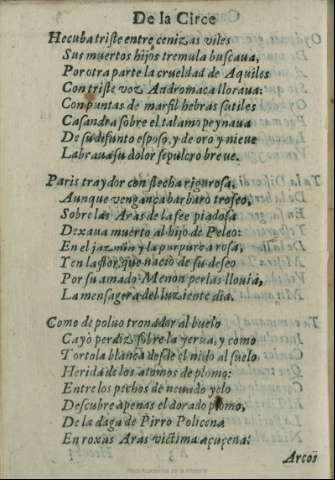 De la Circe
Hecuba triste entre cenizas viles
Sus muertos hijos tremula buscaua,
Por otra parte la crueldad de Aquiles
Con triste voz Andromaca lloraua:
Con puntas de marfil hebras sutiles
Casandra sobre el talamo peynaua
De su difunto esposo, y de oro y nieue
Labraua su dolor sepulcro breue.
Paris traydor con flecha rigurosa,
Aunque vengança barbaro trofeo,
Sobre las Aras de la fee piadosa
Dexaua muerto al hijo de Peleo:
En el jazmin y la purpurea rosa,
Y en la flor, que nacio de su deseo
Por su amado Menon perlas llouia,
La mensagera del luziente dia.
Como de poluo tronador al buelo
Cayò perdiz sobre la yerua, y como
Tortola blanca desde el nido al suelo
Herida de los atomos de plomo:
Entre los pechos de neuado yelo
Descubre apenas el dorado pomo,
De la daga de Pirro Policena
En roxas Aras victima açuçena:
Arcoï
Real Academia de la Historia